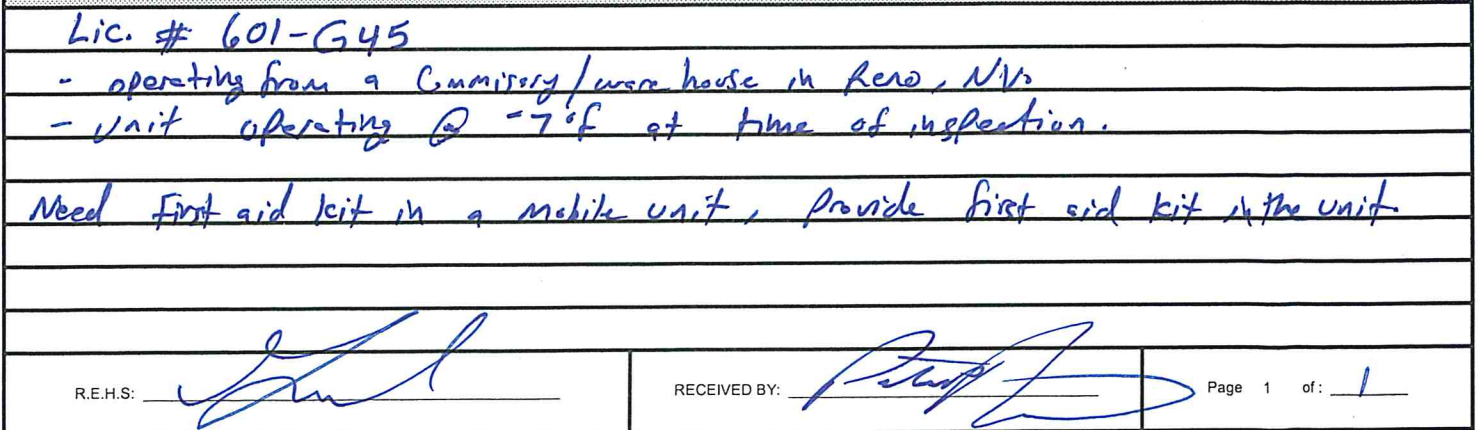 Lic. # 601-G45
- operating from a Commisory/ware house in Reno, NV.
- Unit operating @ -7°f at time of inspection.
Need first aid kit in a mobile unit, Provide first aid kit in the unit.
R.E.H.S:
RECEIVED BY:
Page 1 of: 1